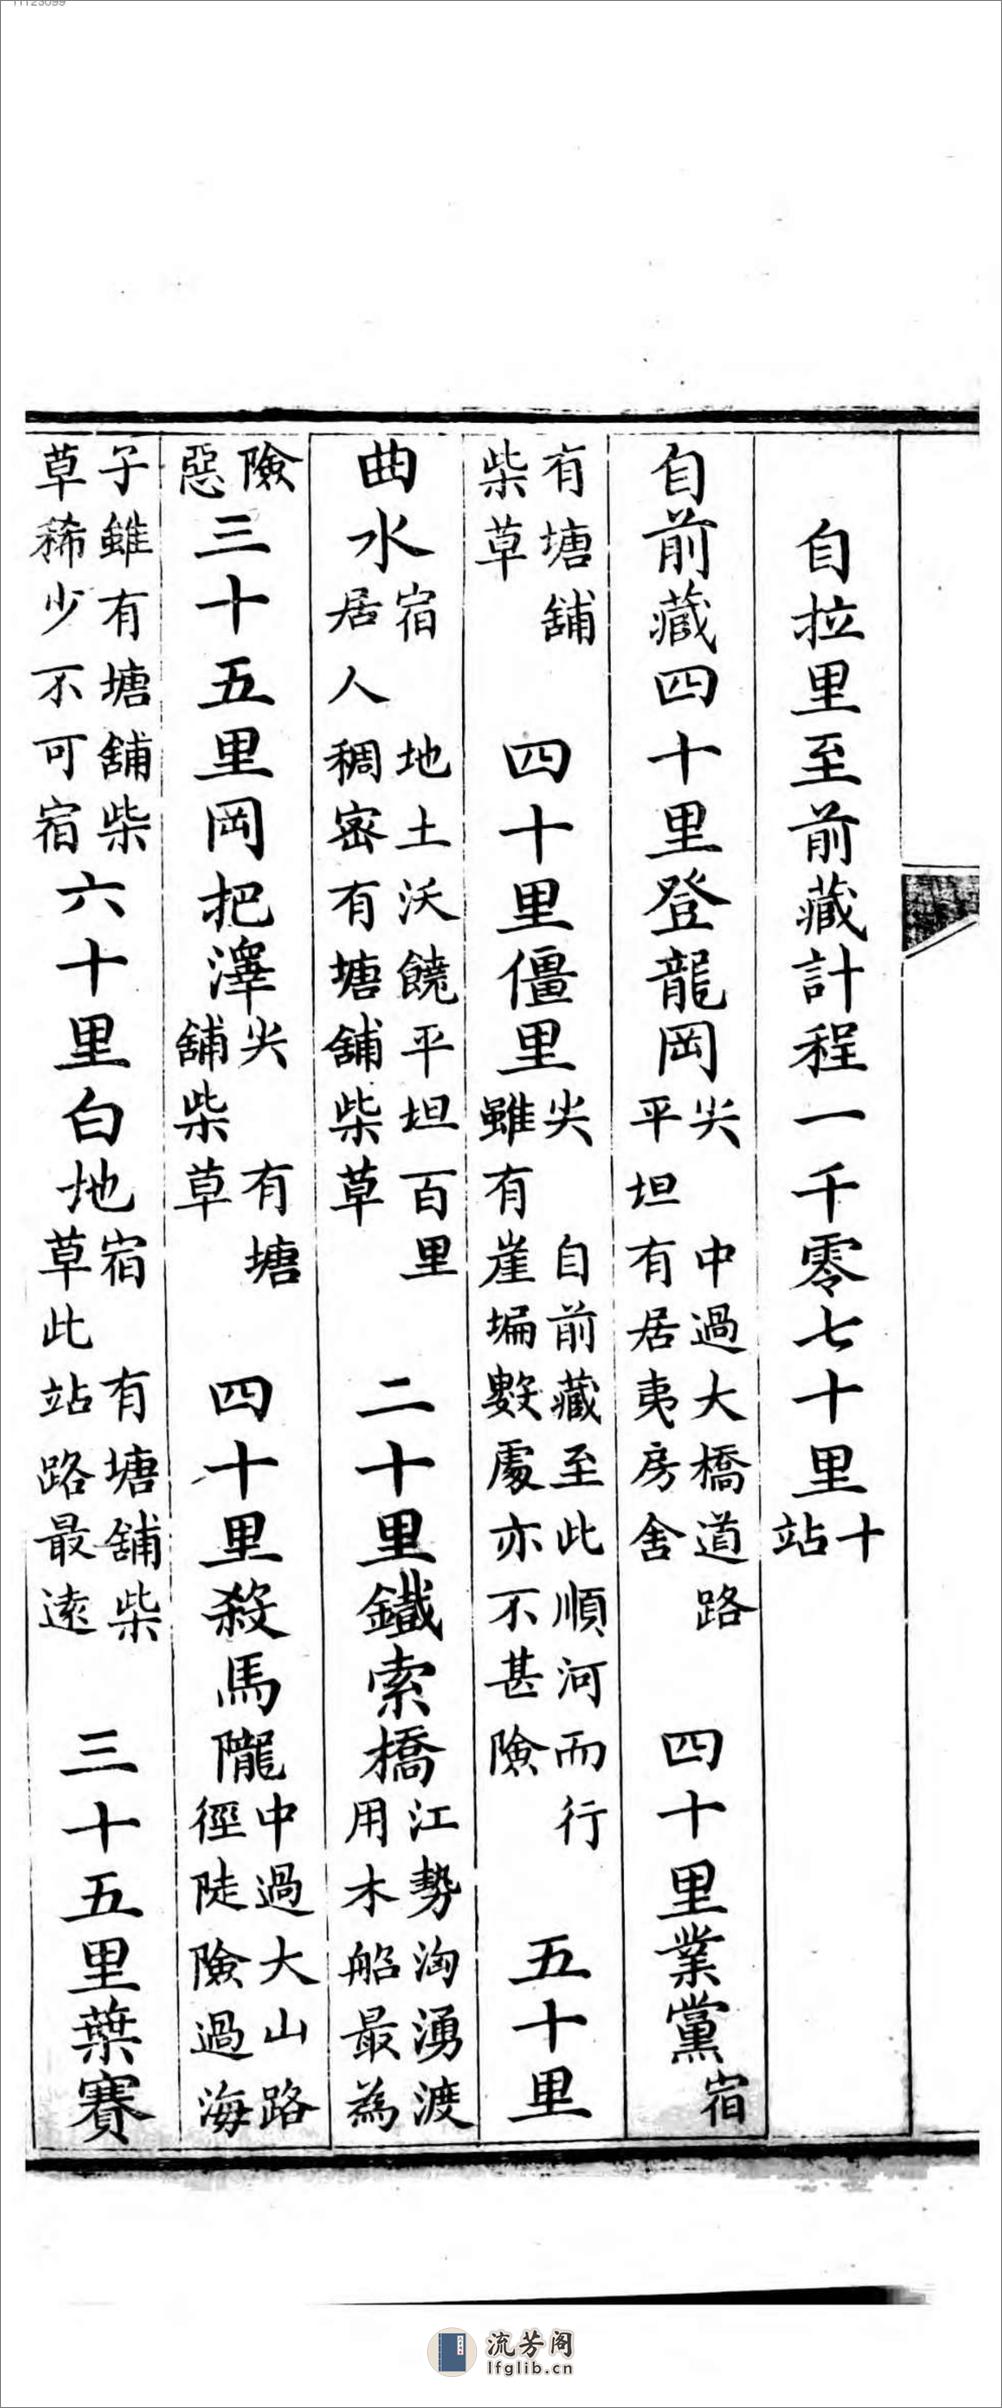 11123099
自拉里至前藏計程一千零七十里十站
自前藏四十里登龍岡尖 中過大橋道路平坦有居夷房舍 四十里業黨宿
有塘舖柴草 四十里僵里尖 自前藏至此順河而行雖有崖數處亦不甚險 五十里
曲水宿 地土沃饒平坦百里居人稠密有塘舖柴草 二十里鐵索橋江勢洶湧渡用木船最為
險惡三十五里岡把澤尖 有塘舖柴草 四十里殺馬隴中過大山路徑陡險過海
子雖有塘舖柴草稀少不可宿六十里白地宿 有塘舖柴草此站路最遠 三十五里葉賽
流芳阁
lfglib.cn